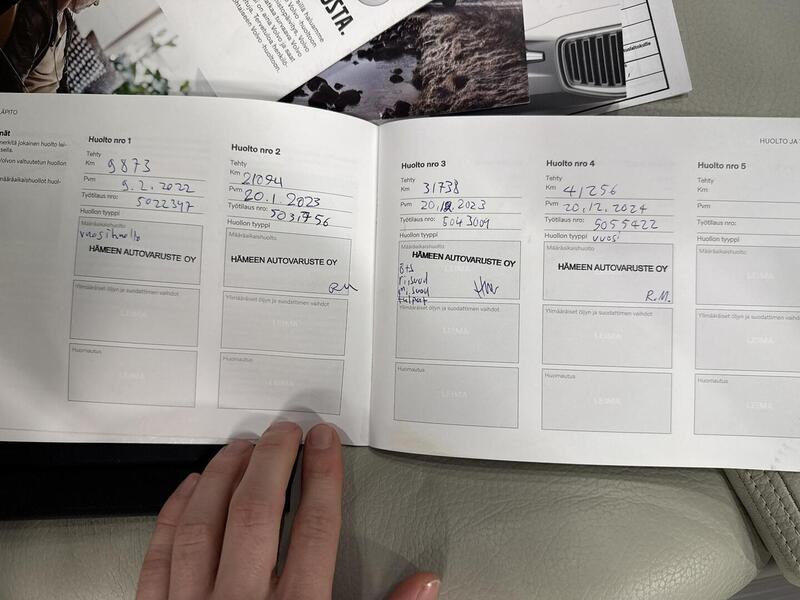 OSTA.
LÄPITO
HUOLTO JA
Huolto nro 1
Tehty
Km 9873
Pvm 9.2.2022
Työtilaus nro: 5022347
Huollon tyyppi
Määräaikaishuolto
vuosihuolto
HÄMEEN AUTOVARUSTE OY
Ylimääräiset öljyn ja suodattimen vaihdot
Huomautus
Huolto nro 2
Tehty
Km 21094
Pvm 20.1.2023
Työtilaus nro: 5031756
Huollon tyyppi
Määräaikaishuolto
HÄMEEN AUTOVARUSTE OY
RM
Ylimääräiset öljyn ja suodattimen vaihdot
Huomautus
LEIMA
Huolto nro 3
Tehty
Km 31738
Pvm 20.12.2023
Työtilaus nro: 5043009
Huollon tyyppi
Määräaikaishuolto
HÄMEEN AUTOVARUSTE OY
LEIMA
ö+s
Ylimääräiset öljyn ja suodattimen vaihdot
LEIMA
Huomautus
LEIMA
Huolto nro 4
Tehty
Km 41256
Pvm 20.12.2024
Työtilaus nro: 5055422
Huollon tyyppi vuosi
Määräaikaishuolto
HÄMEEN AUTOVARUSTE OY
R.M.
Ylimääräiset öljyn ja suodattimen vaihdot
LEIMA
Huomautus
LEIMA
Huolto nro 5
Tehty
Km
Pvm
Työtilaus nro:
Huollon tyyppi
Määräaikaishuolto
LEIMA
Ylimääräiset öljyn ja suodattimen
LEIMA
Huomautus
LEIMA